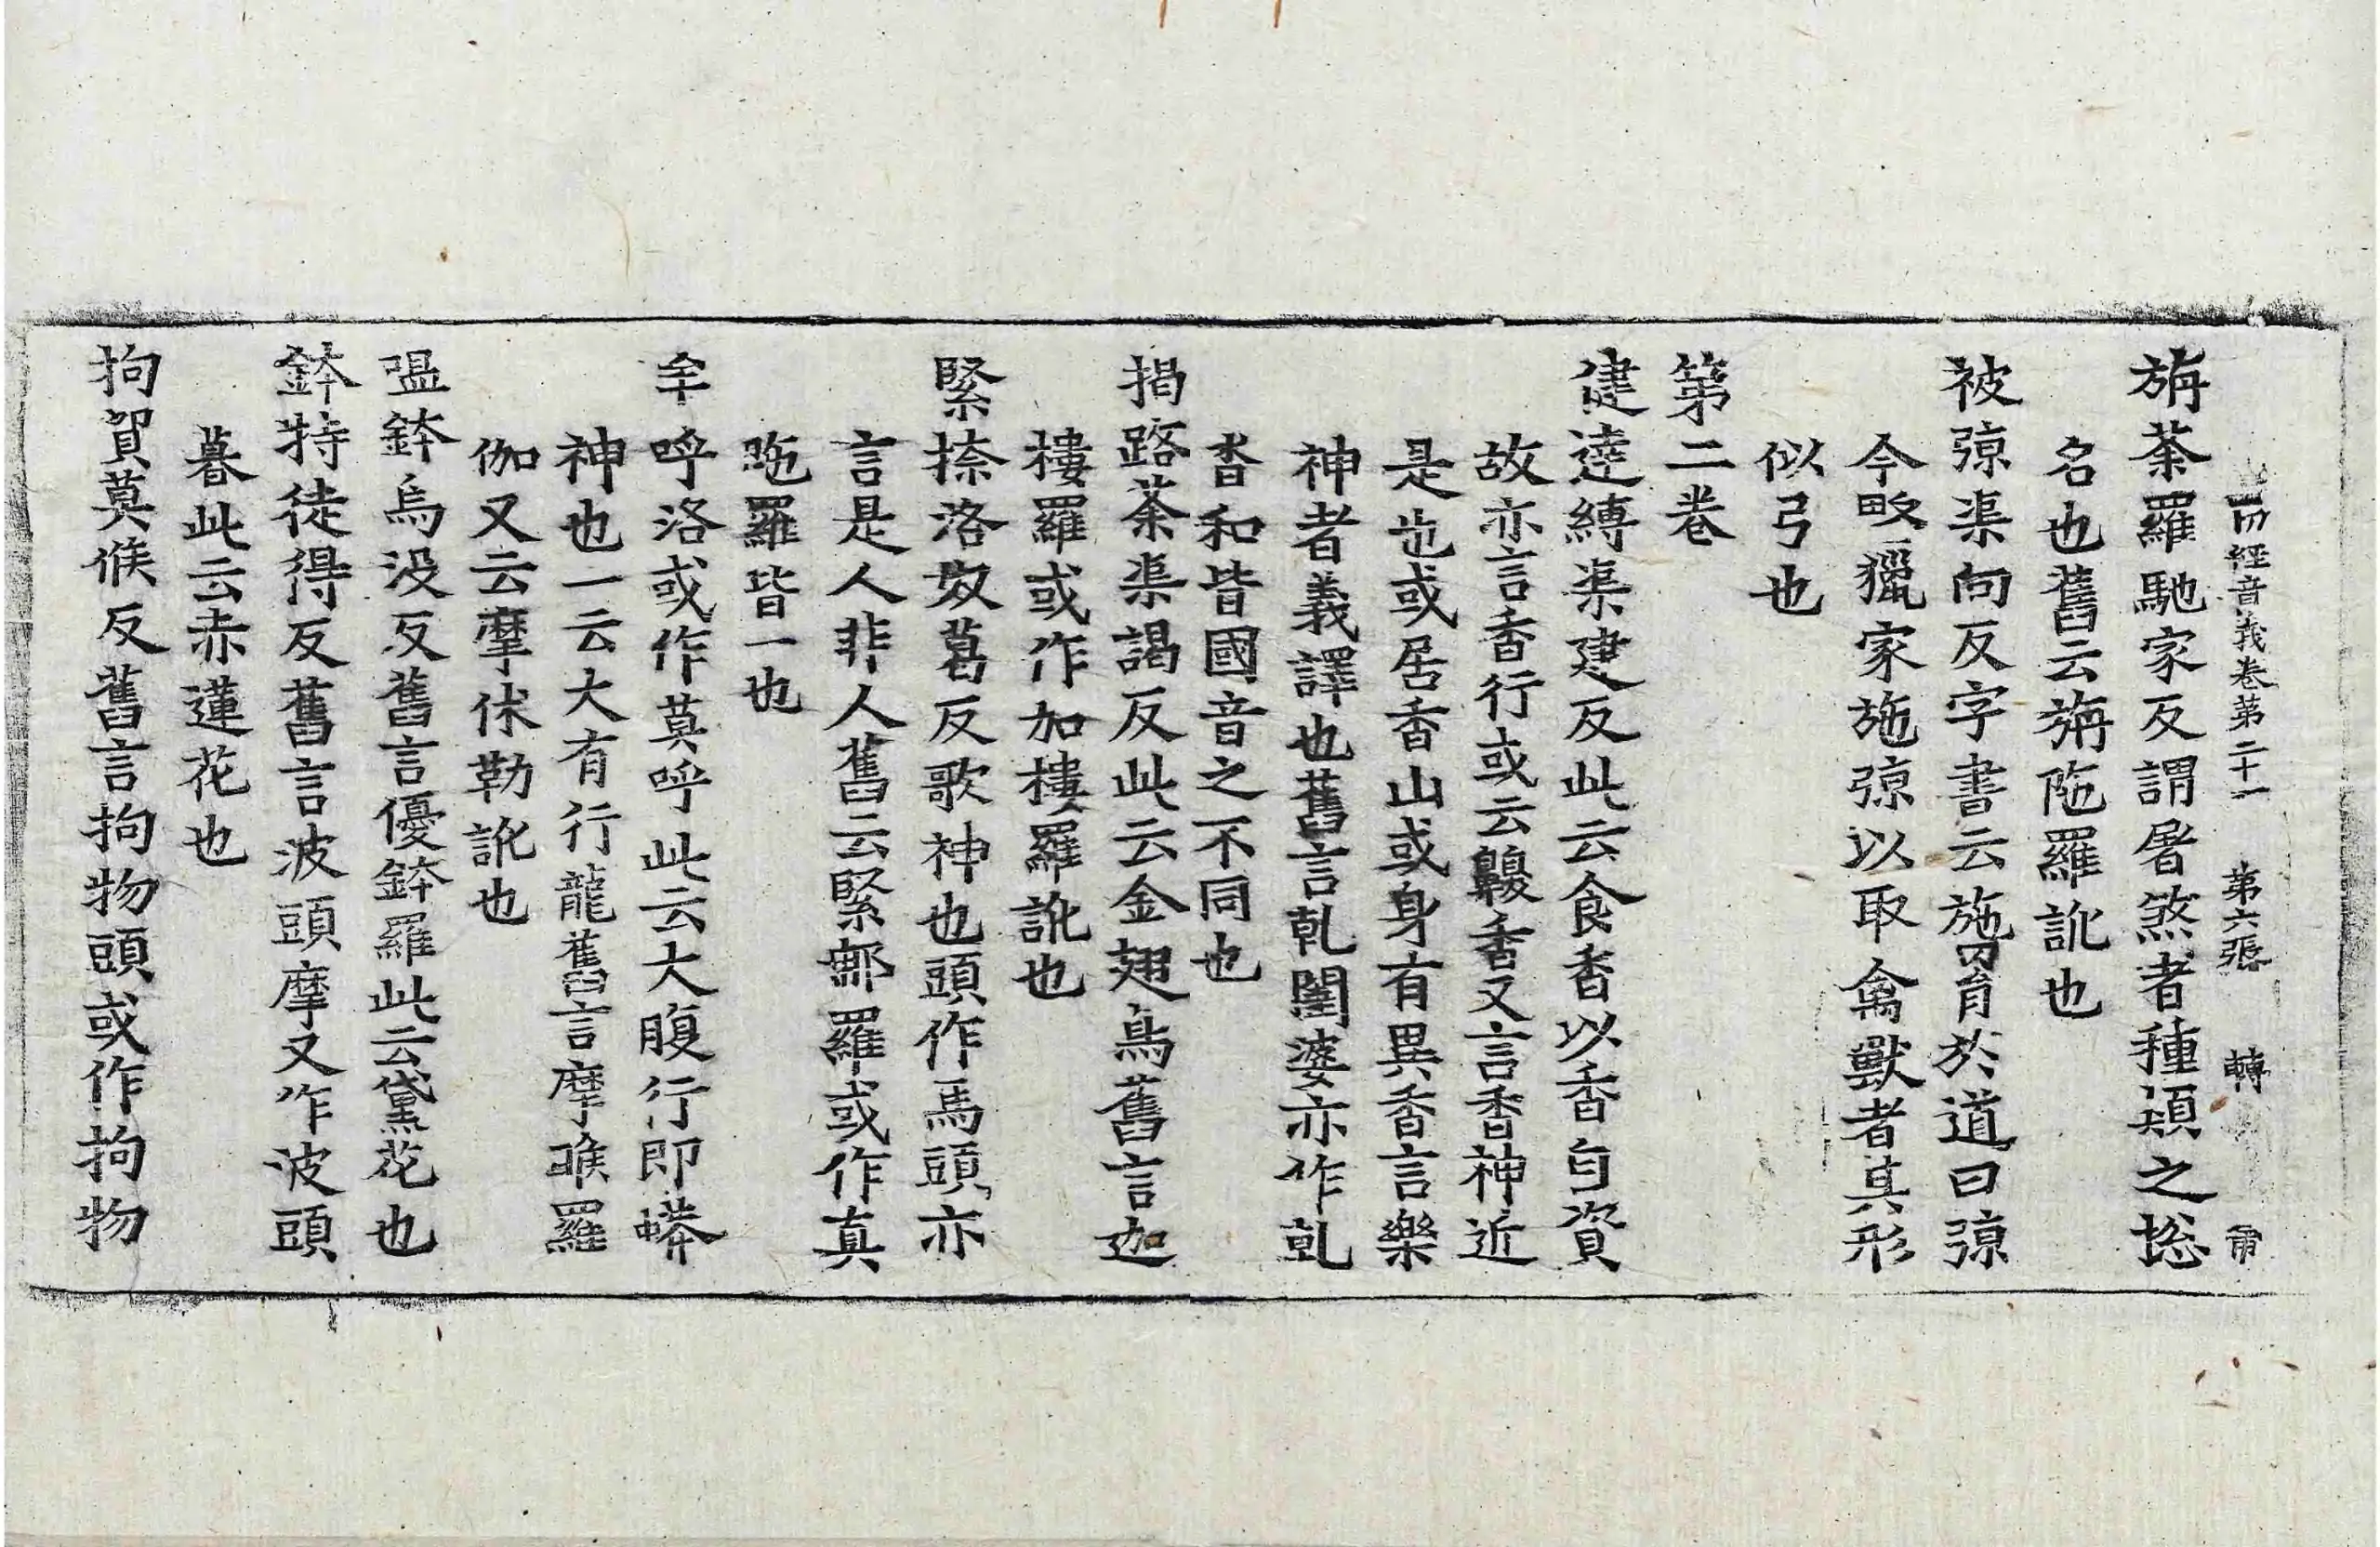 一切經音義卷第二十一 第六張 轉 雷
旃荼羅馳家反謂屠煞者種類之捴
名也舊云旃陁羅訛也
被弶渠向反字書云施罥於道曰弶
今畋獵家施弶以取禽獸者其形
似弓也
第二卷
健達縛渠建反此云食香以香自資
故亦言香行或云齅香又言香神近
是也或居香山或身有異香言樂
神者義譯也舊言乹闥婆亦作乹
沓和皆國音之不同也
揭路荼渠謁反此云金翅鳥舊言迦
樓羅或作加樓羅訛也
緊捺洛奴葛反歌神也頭作馬頭亦
言是人非人舊云緊那羅或作真
陁羅皆一也
牟呼洛或作莫呼此云大腹行即蟒
神也一云大有行龍舊言摩睺羅
伽又云摩休勒訛也
嗢鉢烏没反舊言優鉢羅此云黛花也
鉢特徒得反舊言波頭摩又作波頭
暮此云赤蓮花也
拘貿莫候反舊言拘物頭或作拘物